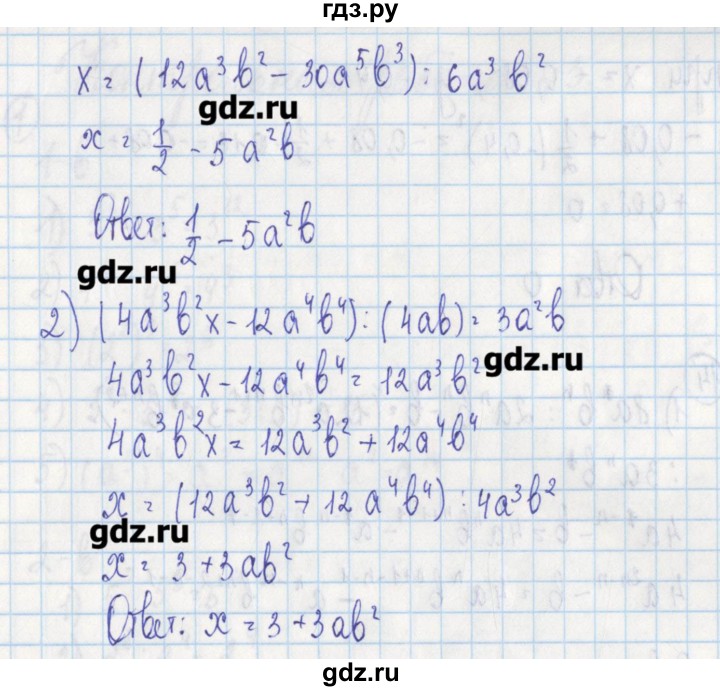 гдз.ру
x = (12a³b² - 30a⁵b³) : 6a³b²
gdz.ru
x = 1/2 - 5a²b
Ответ: 1/2 - 5a²b
gdz.ru
2) (4a³b²x - 12a⁴b⁴) : (4ab) = 3a²b
4a³b²x - 12a⁴b⁴ = 12a³b²
gdz.ru
4a³b²x = 12a³b² + 12a⁴b⁴
x = (12a³b² + 12a⁴b⁴) : 4a³b²
gdz.ru
x = 3 + 3ab²
Ответ: x = 3 + 3ab²
gdz.ru